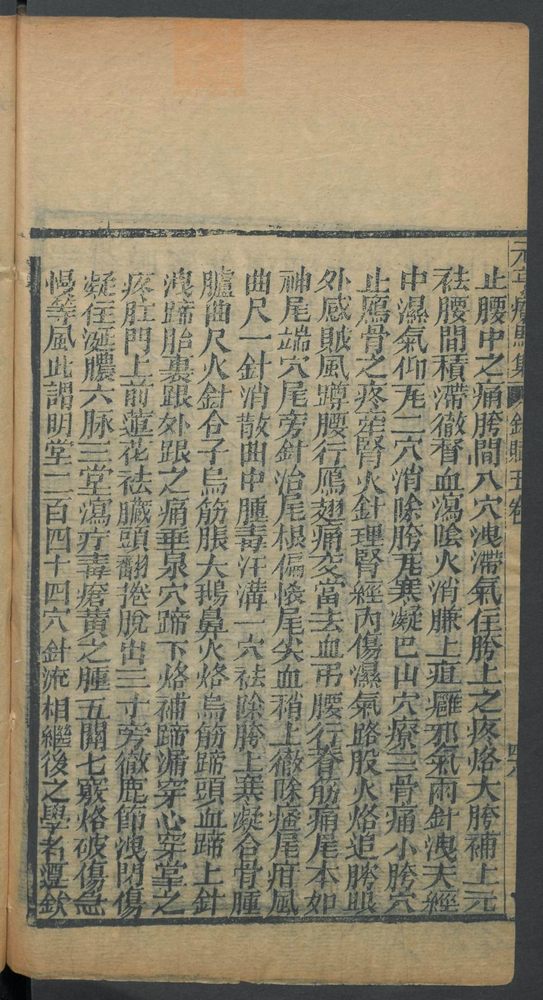 元亨療馬集 針賦五卷 四六
止腰中之痛胯間八穴洩滯氣住胯上之疼烙大胯補上元
祛腰間積滯徹腎血瀉陰火消臁上疽癰邪氣兩針洩天經
中濕氣仰瓦二穴消除胯瓦寒凝巴山穴療三骨痛小胯穴
止鴈骨之疼乕腎火針理腎經內傷濕氣路股火烙追胯眼
外感賊風蹲腰行鴈翅痛交當去血弔腰行脊筋痛尾本如
神尾端穴尾旁針治尾根偏慢尾尖血稍上徹除瘥尾疳風
曲尺一針消散曲中腫毒汗溝一穴祛除胯上寒凝合骨腫
臚曲尺火針合子烏筋脹大鵝鼻火烙烏筋蹄頭血蹄上針
洩蹄胎裏跟外跟之痛垂泉穴蹄下烙補蹄漏穿心穿掌之
疼肛門上前蓮花祛臟頭翻捲脫出三寸旁徹鹿節洩閃傷
凝住涎膿六脉三堂瀉疔毒瘡黃之腫五關七竅烙破傷急
慢等風此謂明堂二百四十四穴針流相繼後之學者遵欽